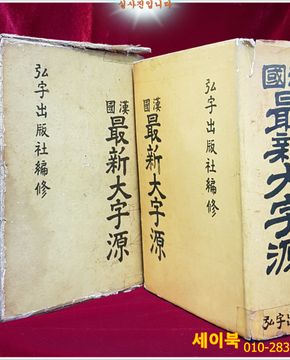 실사진입니다.
國漢
最新大字源
弘字出版社編修
國漢
最新大字源
弘字出版社編修
國
最新大字源
弘字出
세이북
010-283